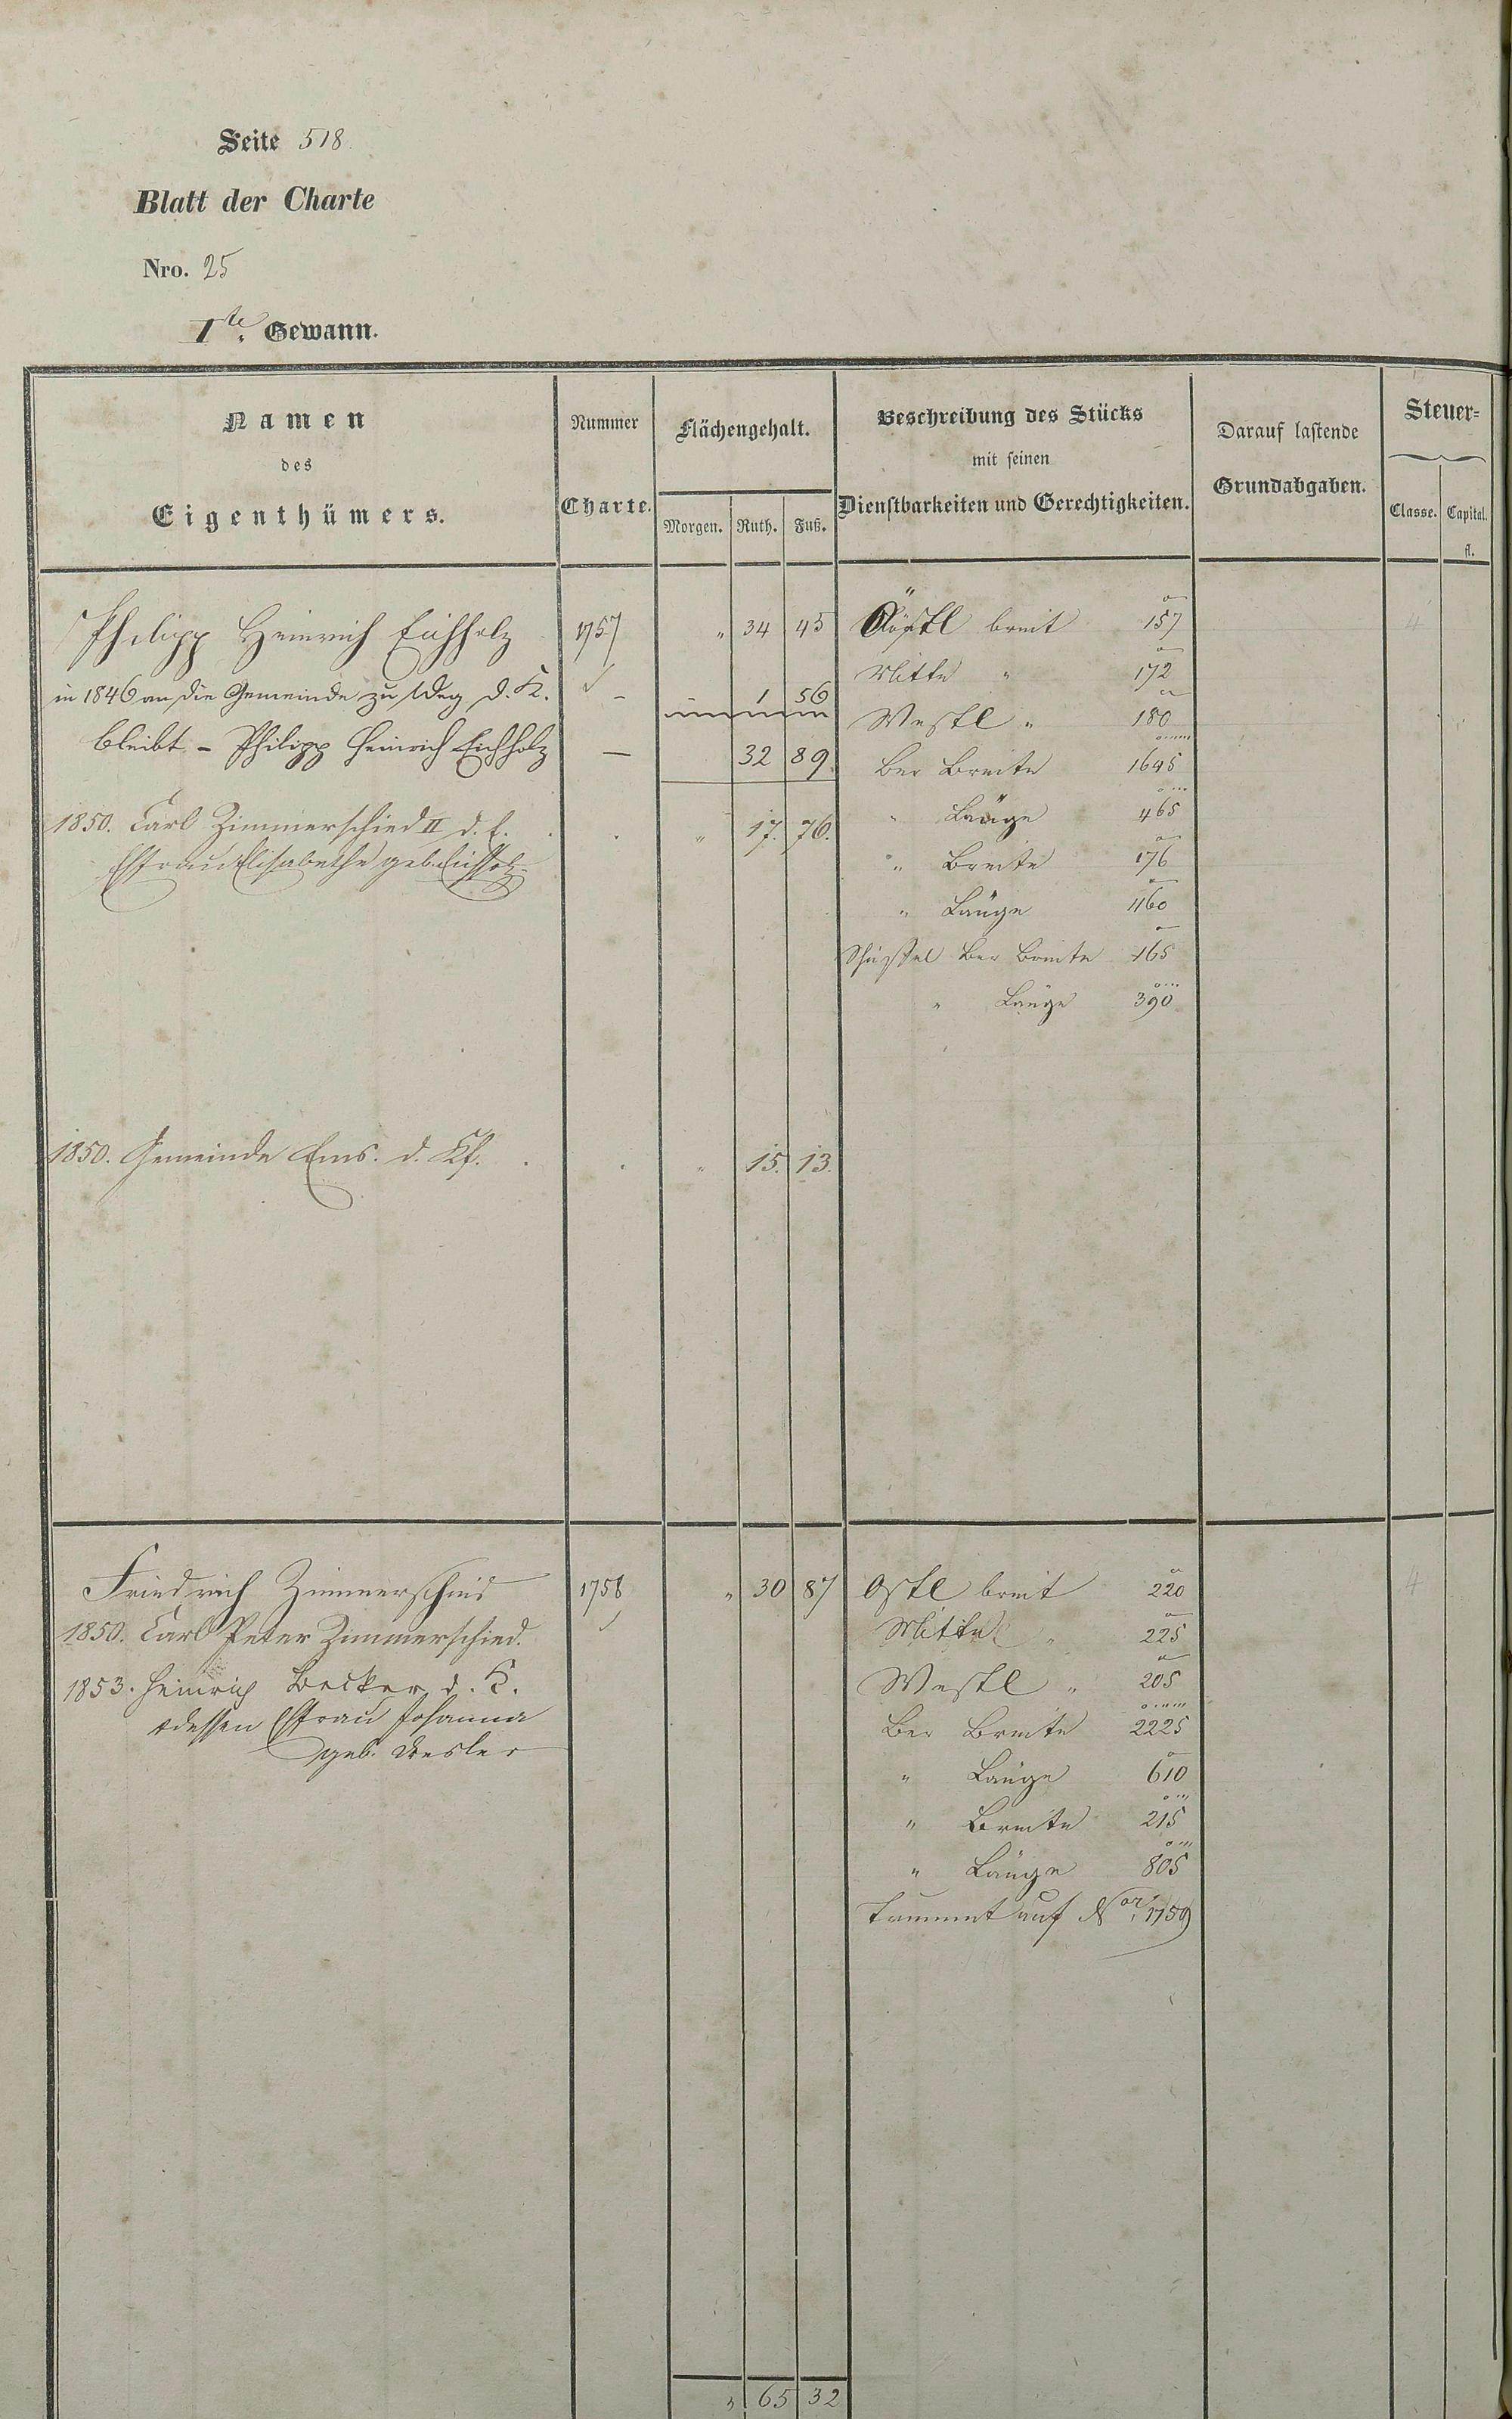 Seite 518
Blatt der Charte
Nro. 25
I.te Gewann.
Namen
des
Eigenthümers.
Nummer
Charte.
Flächengehalt.
Morgen. Ruth. Fuß.
Beschreibung des Stücks
mit seinen
Dienstbarkeiten und Gerechtigkeiten.
Darauf lastende
Grundabgaben.
Steuer-
Classe. Capital.
fl.
Philipp Heinrich Eichholz 1757 " 34 45 Östl breit 157 4
Mitte " 172
in 1846 an die Gemeinde zu Weg d. K. - - 1 56
Westl " 180
bleibt - Philipp Heinrich Eichholz — 32 89.
Ber Breite 1695
1850. Carl Zimmerschied II d. E. " 17. 76.
" Länge 465
Ehfrau Elisabethe geb. Eichholz.
" Breite 176
" Länge 1160
Ber Breite 165
" Länge 390
1850. Gemeinde Ems. d. Kf. " 15. 13.
Friedrich Zimmerschied 1758 " 30 87 Ostl breit 220 4
1850. Carl Peter Zimmerschied.
Mittel " 225
1853. Heinrich Becker d. K.
Westl " 205
dessen Ehfrau Johanna
Ber Breite 2225
geb.
" Länge 610
" Breite 215
" Länge 805
auf Nor. 1759
" 65 32